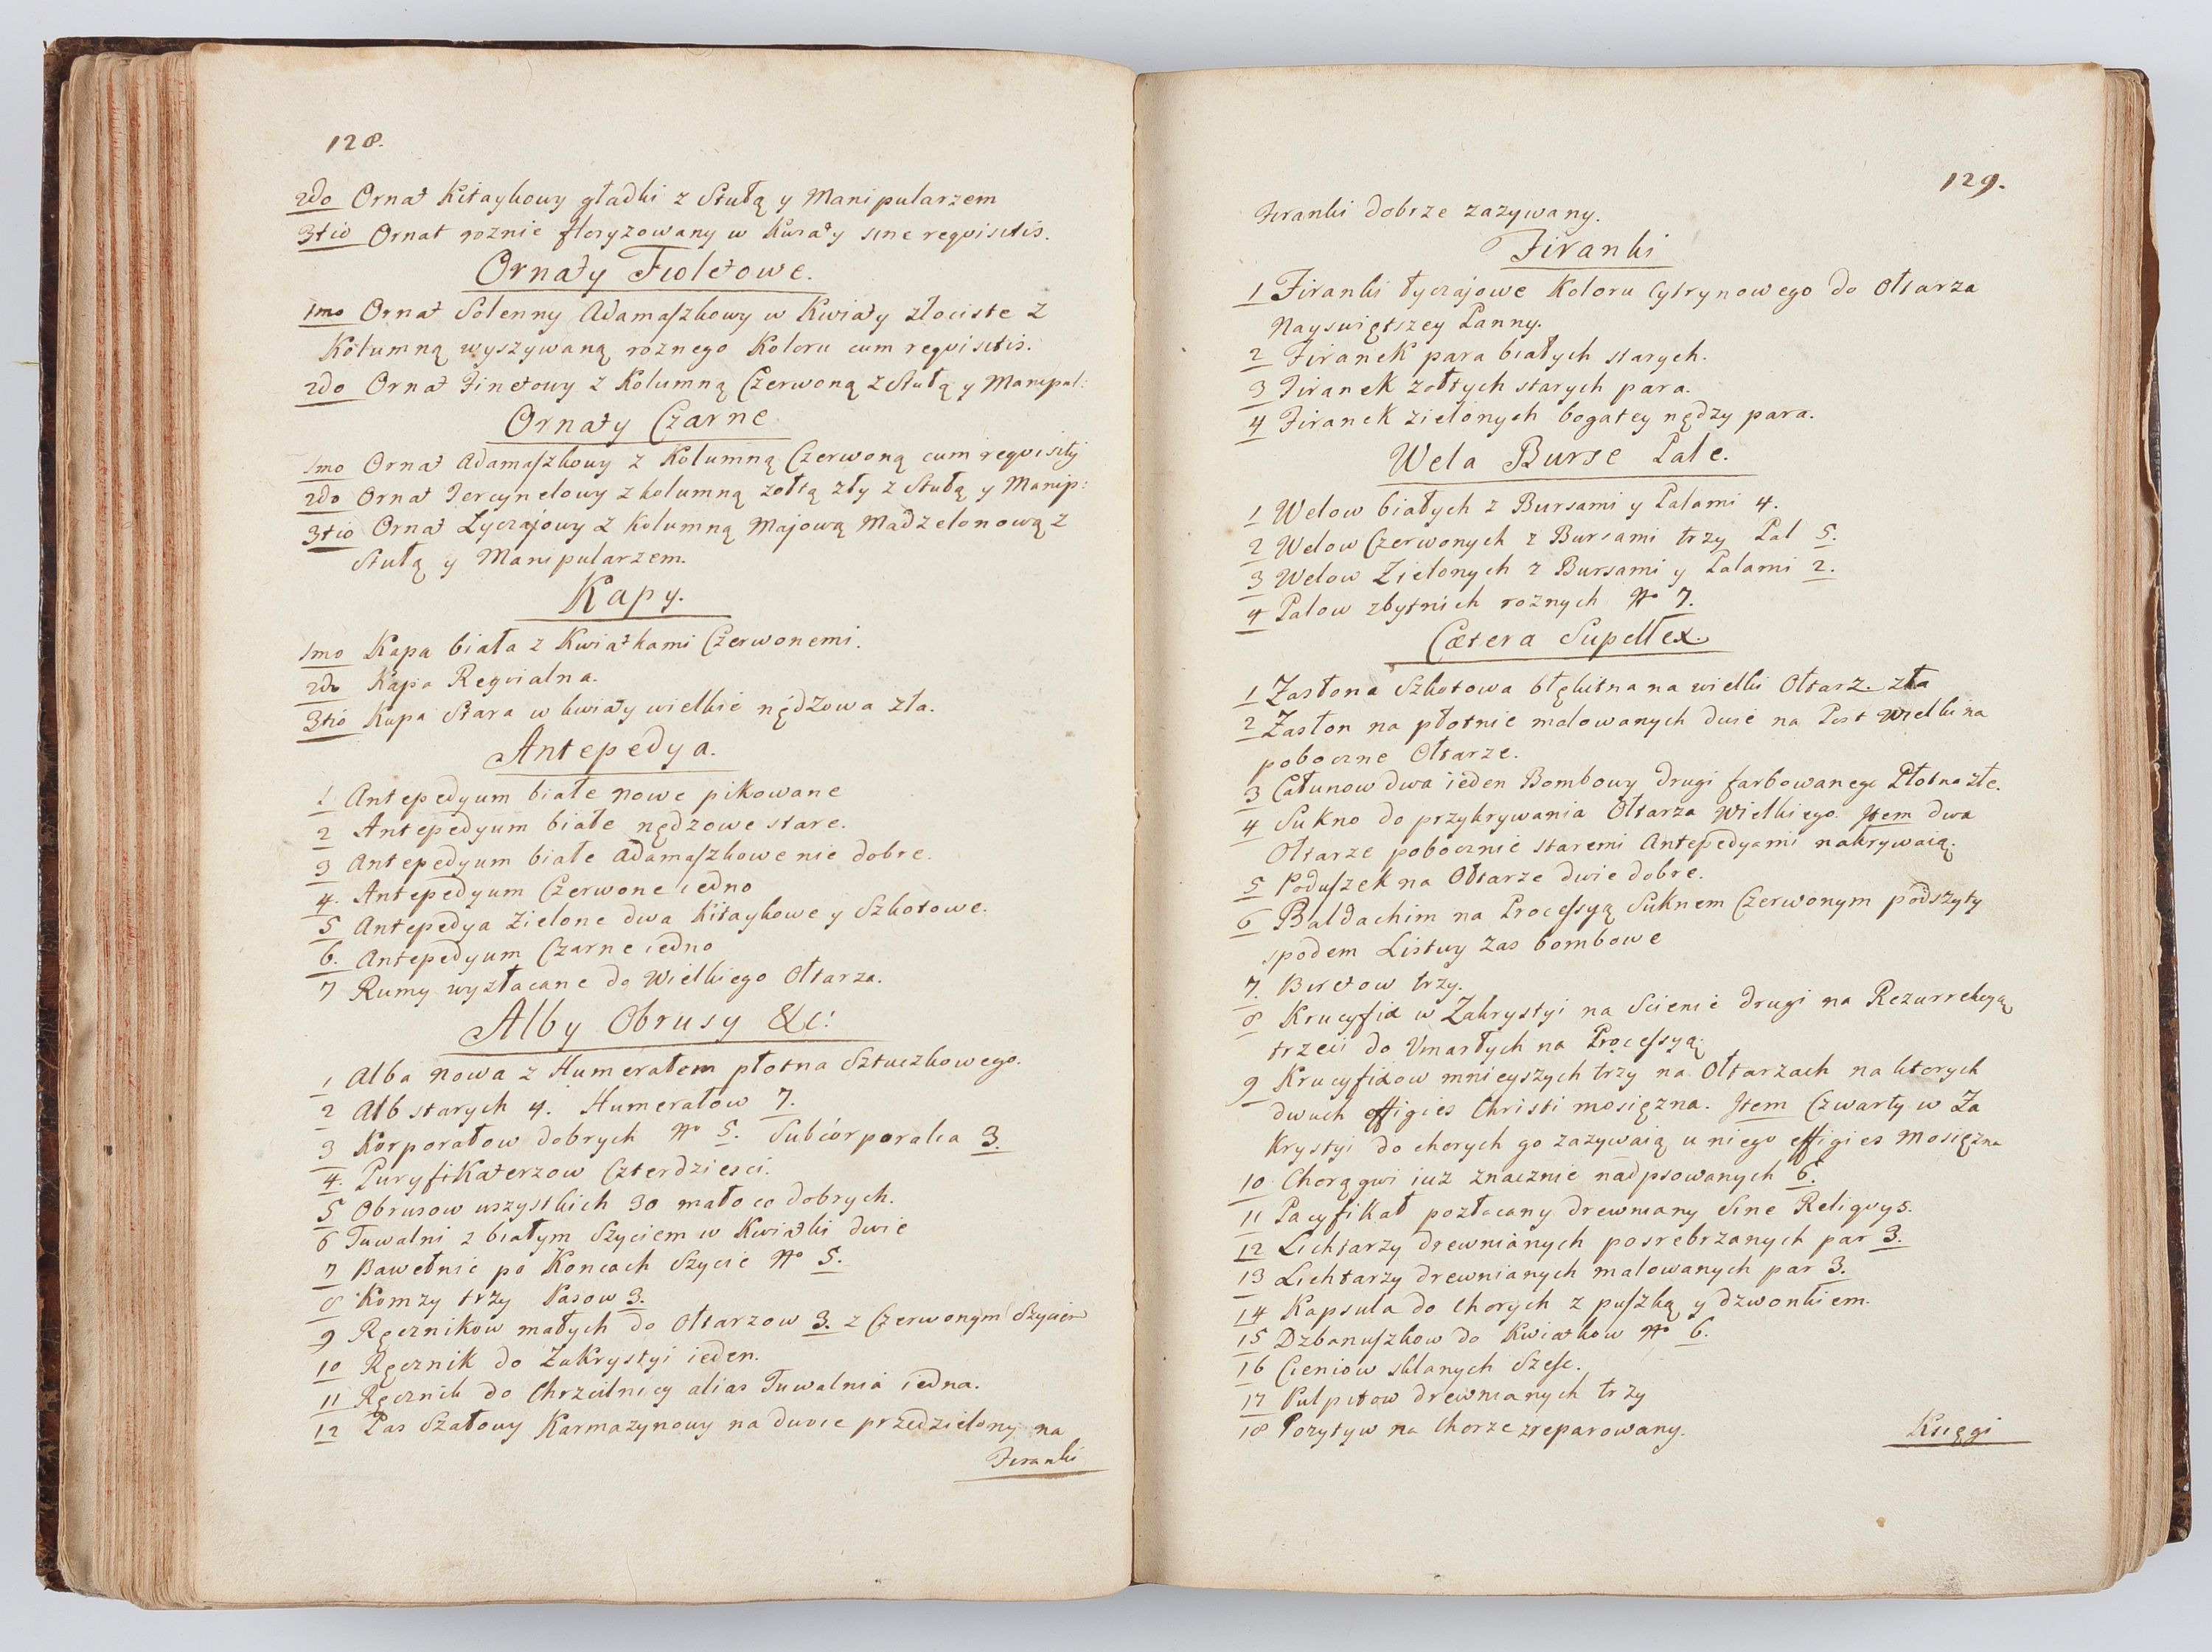 128.
2do Ornat Kitaykowy gładki z Stułą y Manipularzem
3tio Ornat roznie floryzowany w Kwiaty sine reqvisitis.
Ornaty Fioletowe.
1mo Ornat Solenny Adamaszkowy w Kwiaty złociste z
Kolumną wyszywaną roznego Koloru cum reqvisitis.
2do Ornat Finetowy z Kolumną Czerwoną z Stułą y Manipul:
Ornaty Czarne
1mo Ornat Adamaszkowy z Kolumną Czerwoną cum reqvisity
2do Ornat Tercynelowy z kolumną zołtą zły z Stułą y Manip:
3tio Ornat Łyczajowy z Kolumną Majową Madzelonową z
Stułą y Manipularzem.
Kapy.
1mo Kapa biała z Kwiatkami Czerwonemi.
2do Kapa Reqvialna.
3tio Kapa Stara w kwiaty wielkie nędzowa zła.
Antepedya.
1 Antepedyum białe nowe pikowane
2 Antepedyum białe nędzowe stare.
3 Antepedyum białe Adamaszkowe nie dobre.
4. Antepedyum Czerwone iedno
5 Antepedya Zielone dwa Kitaykowe y Szkotowe.
6. Antepedyum Czarne iedno
7 Rumy wyzłacane do Wielkiego Ołtarza.
Alby Obrusy &c:
1 Alba nowa z Humerałem płotna Sztuczkowego.
2 Alb starych 4. Humerałow 7.
3 Korporałow dobrych No 5. Subcorporalia 3.
4. Puryfikaterzow Czterdziesci.
5 Obrusow wszystkich 30 mało co dobrych.
6 Tuwalni z białym Szyciem w Kwiatki dwie
7 Bawełnic po Koncach Szycie No 5.
8 Komzy trzy Pasow 3.
9 Ręcznikow małych do Ołtarzow 3. z Czerwonym Szyciem
10 Ręcznik do Zakrystyi ieden.
11 Ręcznik do Chrzcilnicy alias Tuwalnia iedna.
12 Pas Szałowy Karmazynowy na dwoie przedzielony na
Firanki
129.
Firanki dobrze zazywany.
Firanki
1 Firanki łyczajowe Koloru Cytrynowego do Ołtarza
Nayswiętszey Panny.
2 Firanek para białych starych.
3 Firanek zołtych starych para.
4 Firanek zielonych bogatey nędzy para.
Wela Burse Pale.
1 Welow białych z Bursami y Palami 4.
2 Welow Czerwonych z Bursami trzy Pal 5.
3 Welow Zielonych z Bursami y Palami 2.
4 Palow zbytnich roznych No 7.
Cætera Supellex.
1 Zasłona Szkotowa błękitna na wielki Ołtarz. zła
2 Zasłon na płotnie malowanych dwie na Post Wielki na
poboczne Ołtarze.
3 Całunow dwa ieden Bombowy drugi farbowanego Płotna złe.
4 Sukno do przykrywania Ołtarza Wielkiego. Item dwa
Ołtarze pobocznie staremi Antepedyami nakrywaią.
5 Poduszek na Ołtarze dwie dobre.
6 Baldachim na Processyą Suknem Czerwonym podszyty
spodem Listwy zas bombowe
7. Biretow trzy.
8 Krucyfix w Zakrystyi na Scienie drugi na Rezurrekcyą
trzeci do Umarłych na Processyą.
9 Krucyfixow mnieyszych trzy na Ołtarzach na ktorych
dwuch effigies Christi mosiężna. Item Czwarty w Za
krystyi do chorych go zazywaią u niego effigies Mosiężna
10 Chorągwi iuz znacznie nadpsowanych 6.
11 Pacyfikał pozłacany drewniany Sine Reliqvys.
12 Lichtarzy drewnianych posrebrzanych par 3.
13 Lichtarzy drewnianych malowanych par 3.
14 Kapsula do Chorych z puszką y dzwonkiem.
15 Dzbanuszkow do Kwiatkow No 6.
16 Cieniow sklanych Szesc.
17 Pulpitow drewnianych trzy
18 Pozytyw na Chorze zreparowany.
Księgi